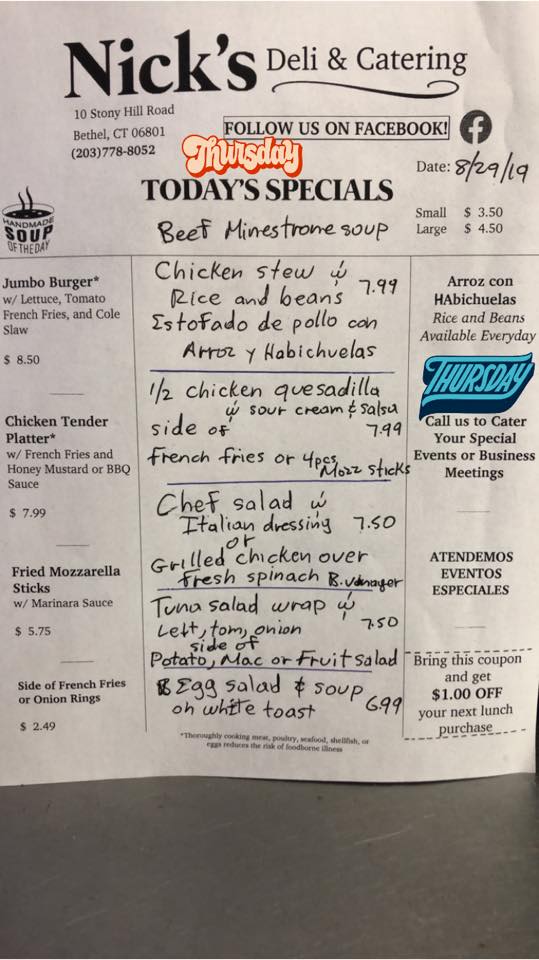 Nick's Deli & Catering
10 Stony Hill Road
Bethel, CT 06801
(203)778-8052
FOLLOW US ON FACEBOOK!
f
Thursday
TODAY'S SPECIALS
Date: 8/29/19
HANDMADE
SOUP
OF THE DAY
Beef Minestrone soup
Small $ 3.50
Large $ 4.50
Jumbo Burger*
w/ Lettuce, Tomato
French Fries, and Cole
Slaw
$ 8.50
Chicken Tender
Platter*
w/ French Fries and
Honey Mustard or BBQ
Sauce
$ 7.99
Fried Mozzarella
Sticks
w/ Marinara Sauce
$ 5.75
Side of French Fries
or Onion Rings
$ 2.49
Chicken stew w
Rice and beans 7.99
Estofado de pollo con
Arroz y Habichuelas
1/2 chicken quesadilla
w sour cream & salsa
side of 7.99
french fries or 4pcs
Mozz sticks
Chef salad w
Italian dressing 7.50
or
Grilled chicken over
fresh spinach B.vinager
Tuna salad wrap w
Lett, tom, onion 7.50
side of
Potato, Mac or Fruit salad
Egg salad & soup
on white toast 6.99
*Thoroughly cooking meat, poultry, seafood, shellfish, or
eggs reduces the risk of foodborne illness
Arroz con
HAbichuelas
Rice and Beans
Available Everyday
THURSDAY
Call us to Cater
Your Special
Events or Business
Meetings
ATENDEMOS
EVENTOS
ESPECIALES
Bring this coupon
and get
$1.00 OFF
your next lunch
purchase